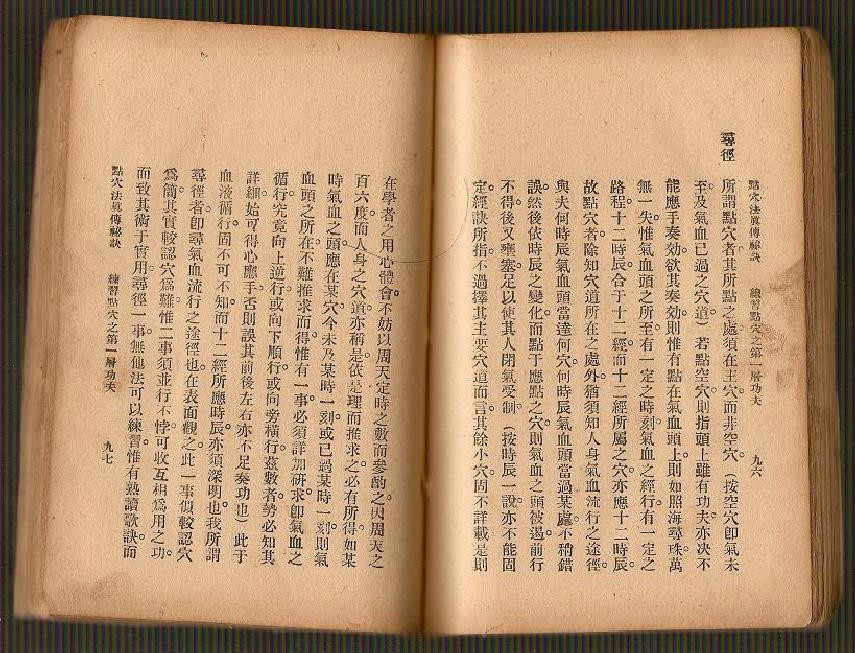 點穴法眞傳秘訣　練習點穴之第一層功夫　九六
尋徑
所謂點穴者其所點之處須在主穴而非空穴。（按空穴卽氣未
至及氣血已過之穴道）若點空穴則指頭上雖有功夫亦決不
能應手奏効欲其奏効則惟有點在氣血頭上則如照海尋珠萬
無一失惟氣血頭之所至有一定之時刻氣血之經行有一定之
路程十二時辰合于十二經而十二經所屬之穴亦應十二時辰。
故點穴者除知穴道所在之處外猶須知人身氣血流行之途徑。
與夫何時辰氣血頭當達何穴何時辰氣血頭當過某處不稍錯
誤然後依時辰之變化而點于應點之穴則氣血之頭被遏前行
不得後又壅塞足以使其人閉氣受制（按時辰一說亦不能固
定經訣所指不過擇其主要穴道而言其餘小穴固不詳載是則
在學者之用心體會不妨以周天定時之數而參酌之因周天之
百六度而人身之穴道亦稱是依是理而推求之必有所得如某
時氣血之頭應在某穴今未及某時一刻或已過某時一刻則氣
血頭之所在不難推求而得惟有一事必須詳加硏求卽氣血之
循行究竟向上逆行或向下順行或向旁橫行茲數者勢必知其
詳細始可得心應手否則誤其前後左右亦不足奏功也）此于
血液循行固不可不知而十二經所應時辰亦須深明也我所謂
尋徑者卽尋氣血流行之途徑也在表面觀之此一事似較認穴
爲簡其實較認穴爲難惟二事須並行不悖可收互相爲用之功。
而致其術于實用尋徑一事無他法可以練習惟有熟讀歌訣而
點穴法眞傳秘訣　練習點穴之第一層功夫　九七